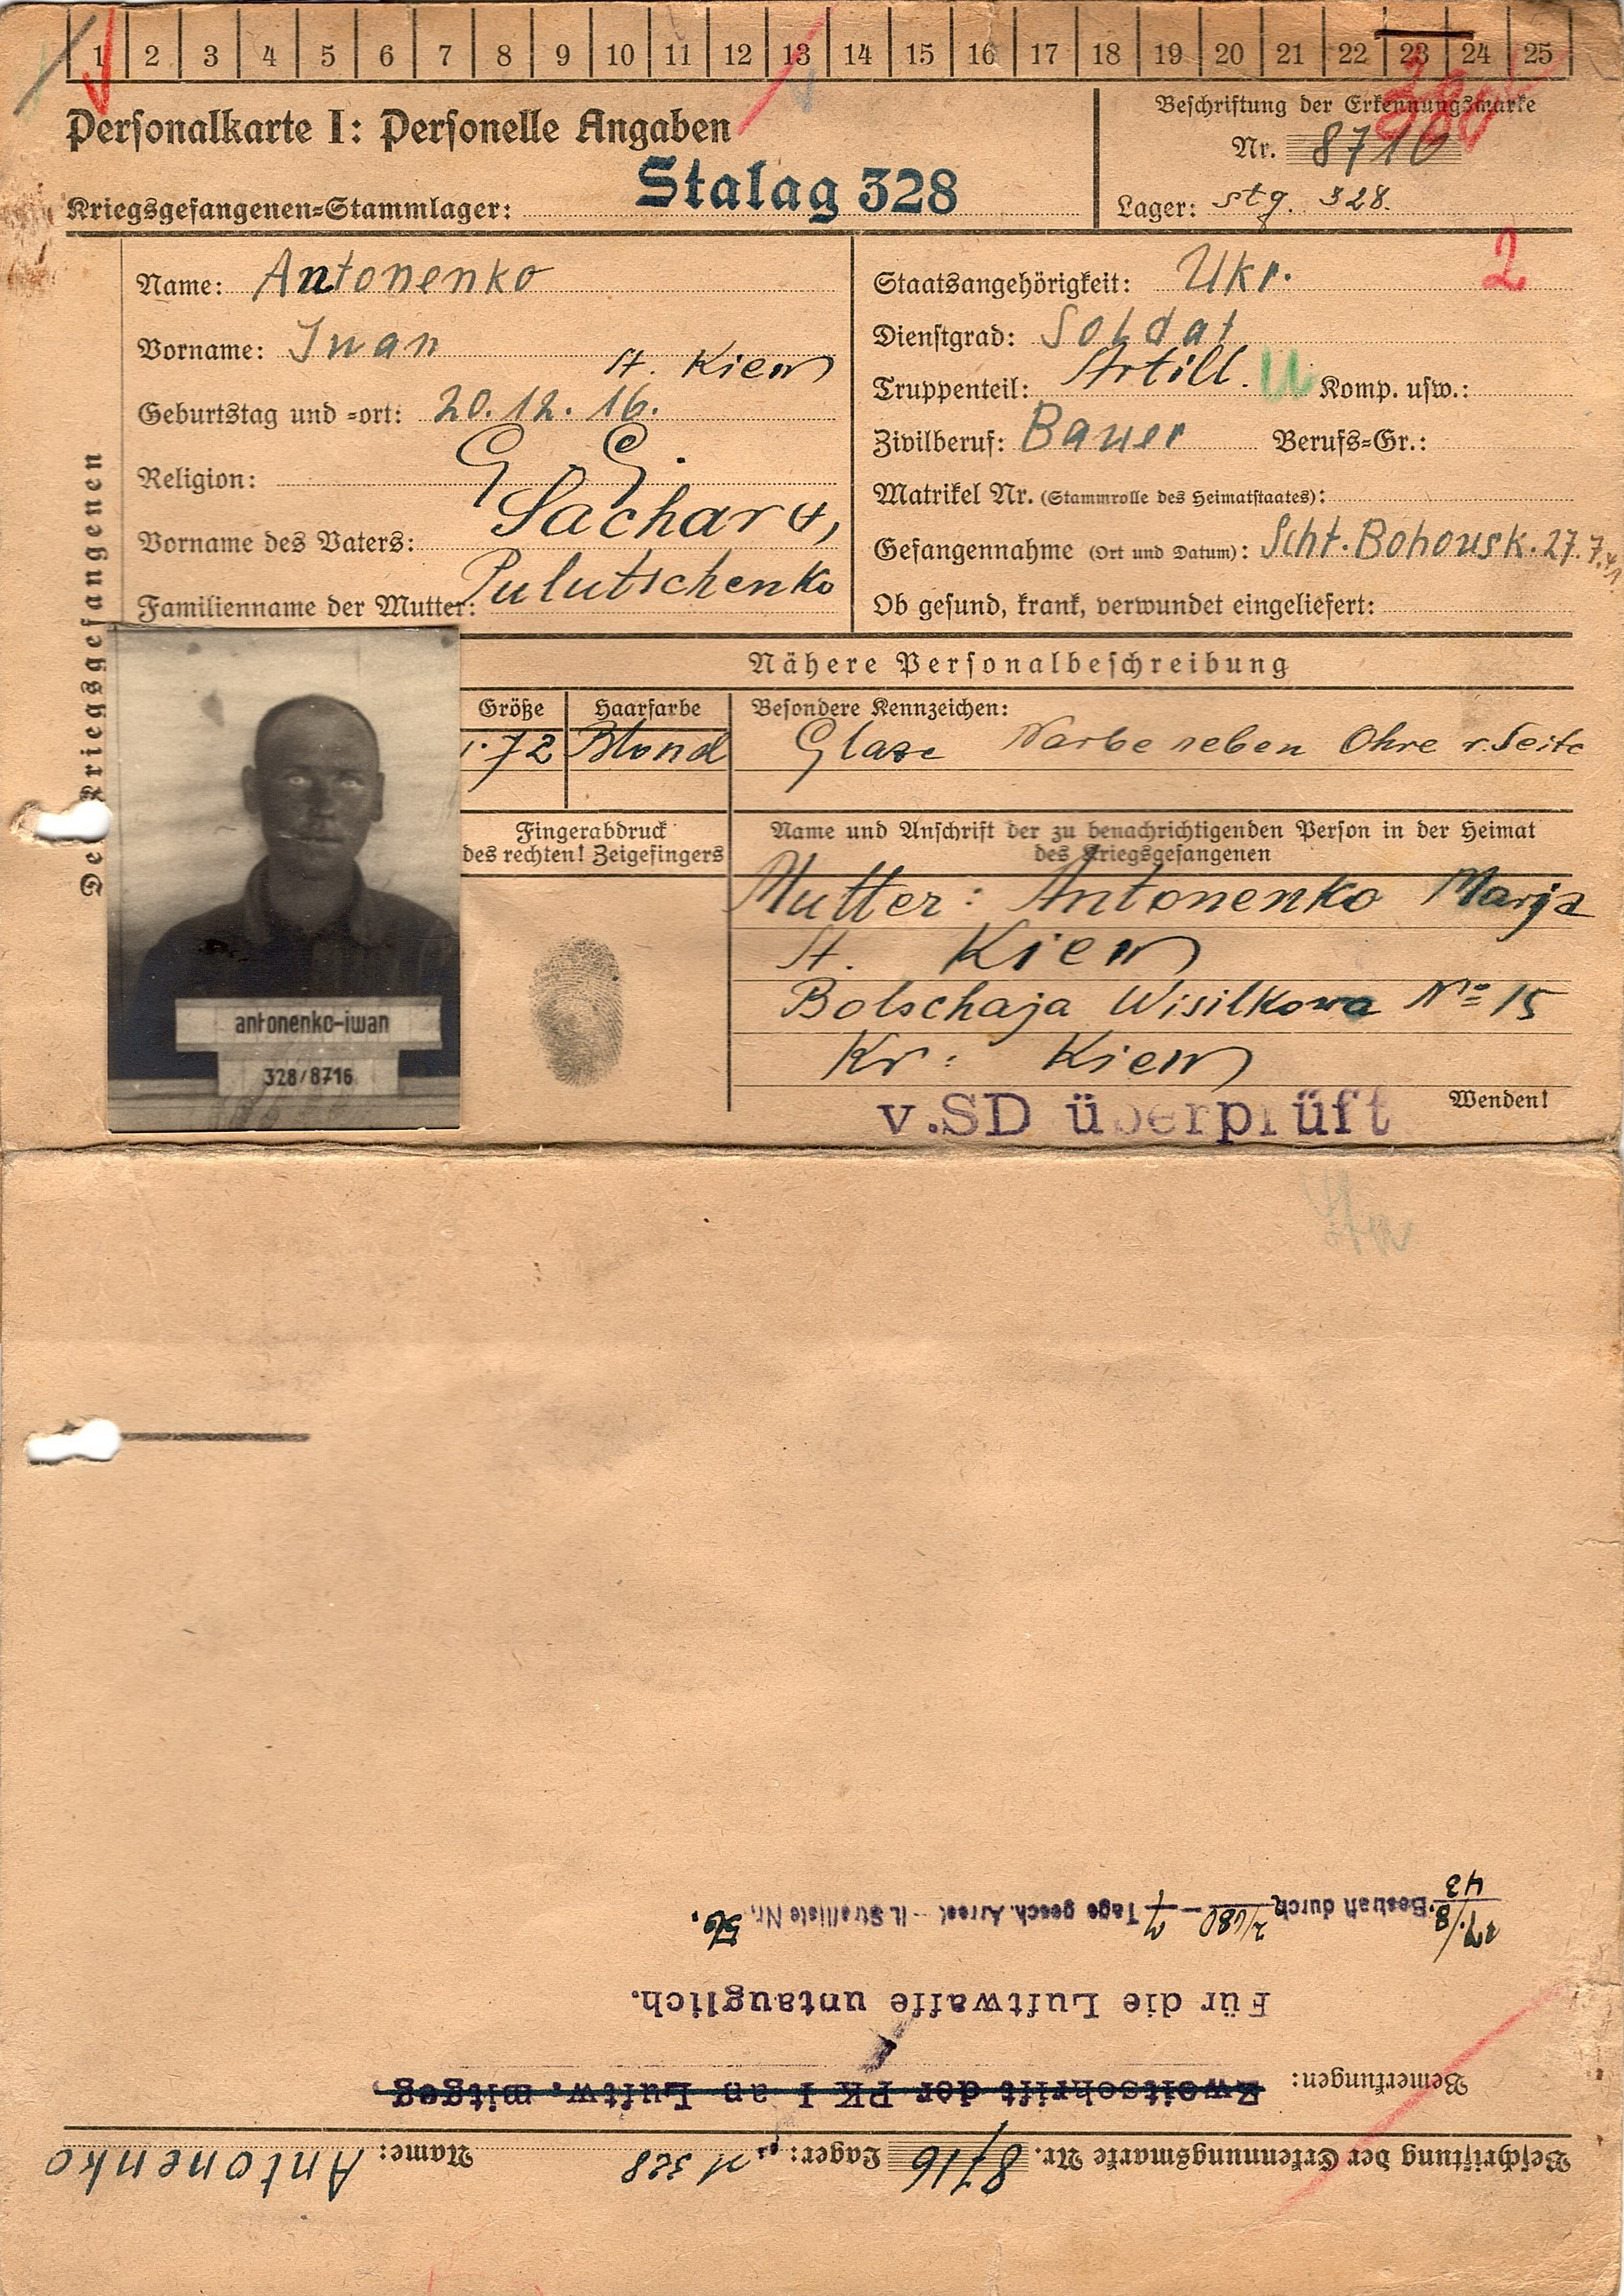 1 2 3 4 5 6 7 8 9 10 11 12 13 14 15 16 17 18 19 20 21 22 23 24 25
Personalkarte I: Personelle Angaben
Kriegsgefangenen-Stammlager: Stalag 328
Beschriftung der Erkennungsmarke
Nr. 8716
Lager: Stg. 328.
Des Kriegsgefangenen
Name: Antonenko
Vorname: Iwan
St. Kiew
Geburtstag und -ort: 20.12.16.
Religion:
Vorname des Vaters: Sachar
Familienname der Mutter: Pulutschenko
Staatsangehörigkeit: Ukr. 2
Dienstgrad: Soldat
Truppenteil: Artill. U Komp. usw.:
Zivilberuf: Bauer Berufs-Gr.:
Matrikel Nr. (Stammrolle des Heimatstaates):
Gefangennahme (Ort und Datum): Scht. Bohousk. 27.7.41
Ob gesund, krank, verwundet eingeliefert:
Nähere Personalbeschreibung
Größe Haarfarbe Besondere Kennzeichen:
1.72 Blond Glaze Narbe neben Ohre r. Seite
Fingerabdruck
des rechten! Zeigefingers
Name und Anschrift der zu benachrichtigenden Person in der Heimat
des Kriegsgefangenen
Mutter: Antonenko Marja
St. Kiew
Bolschaja Wisilkowa No 15
Kr: Kiew
antonenko-iwan
328/8716
v.SD überprüft
Wenden!
Beschriftung der Erkennungsmarke Nr. 8716 Lager: 328 Name: Antonenko
Bemerkungen: Zweitschrift der PK I an Luftw. mitgeg.
Für die Luftwaffe untauglich.
27./8. 43 Bestraft durch 2/680 - 7 Tage gesch. Arrest - lt. Strafliste Nr. 56.